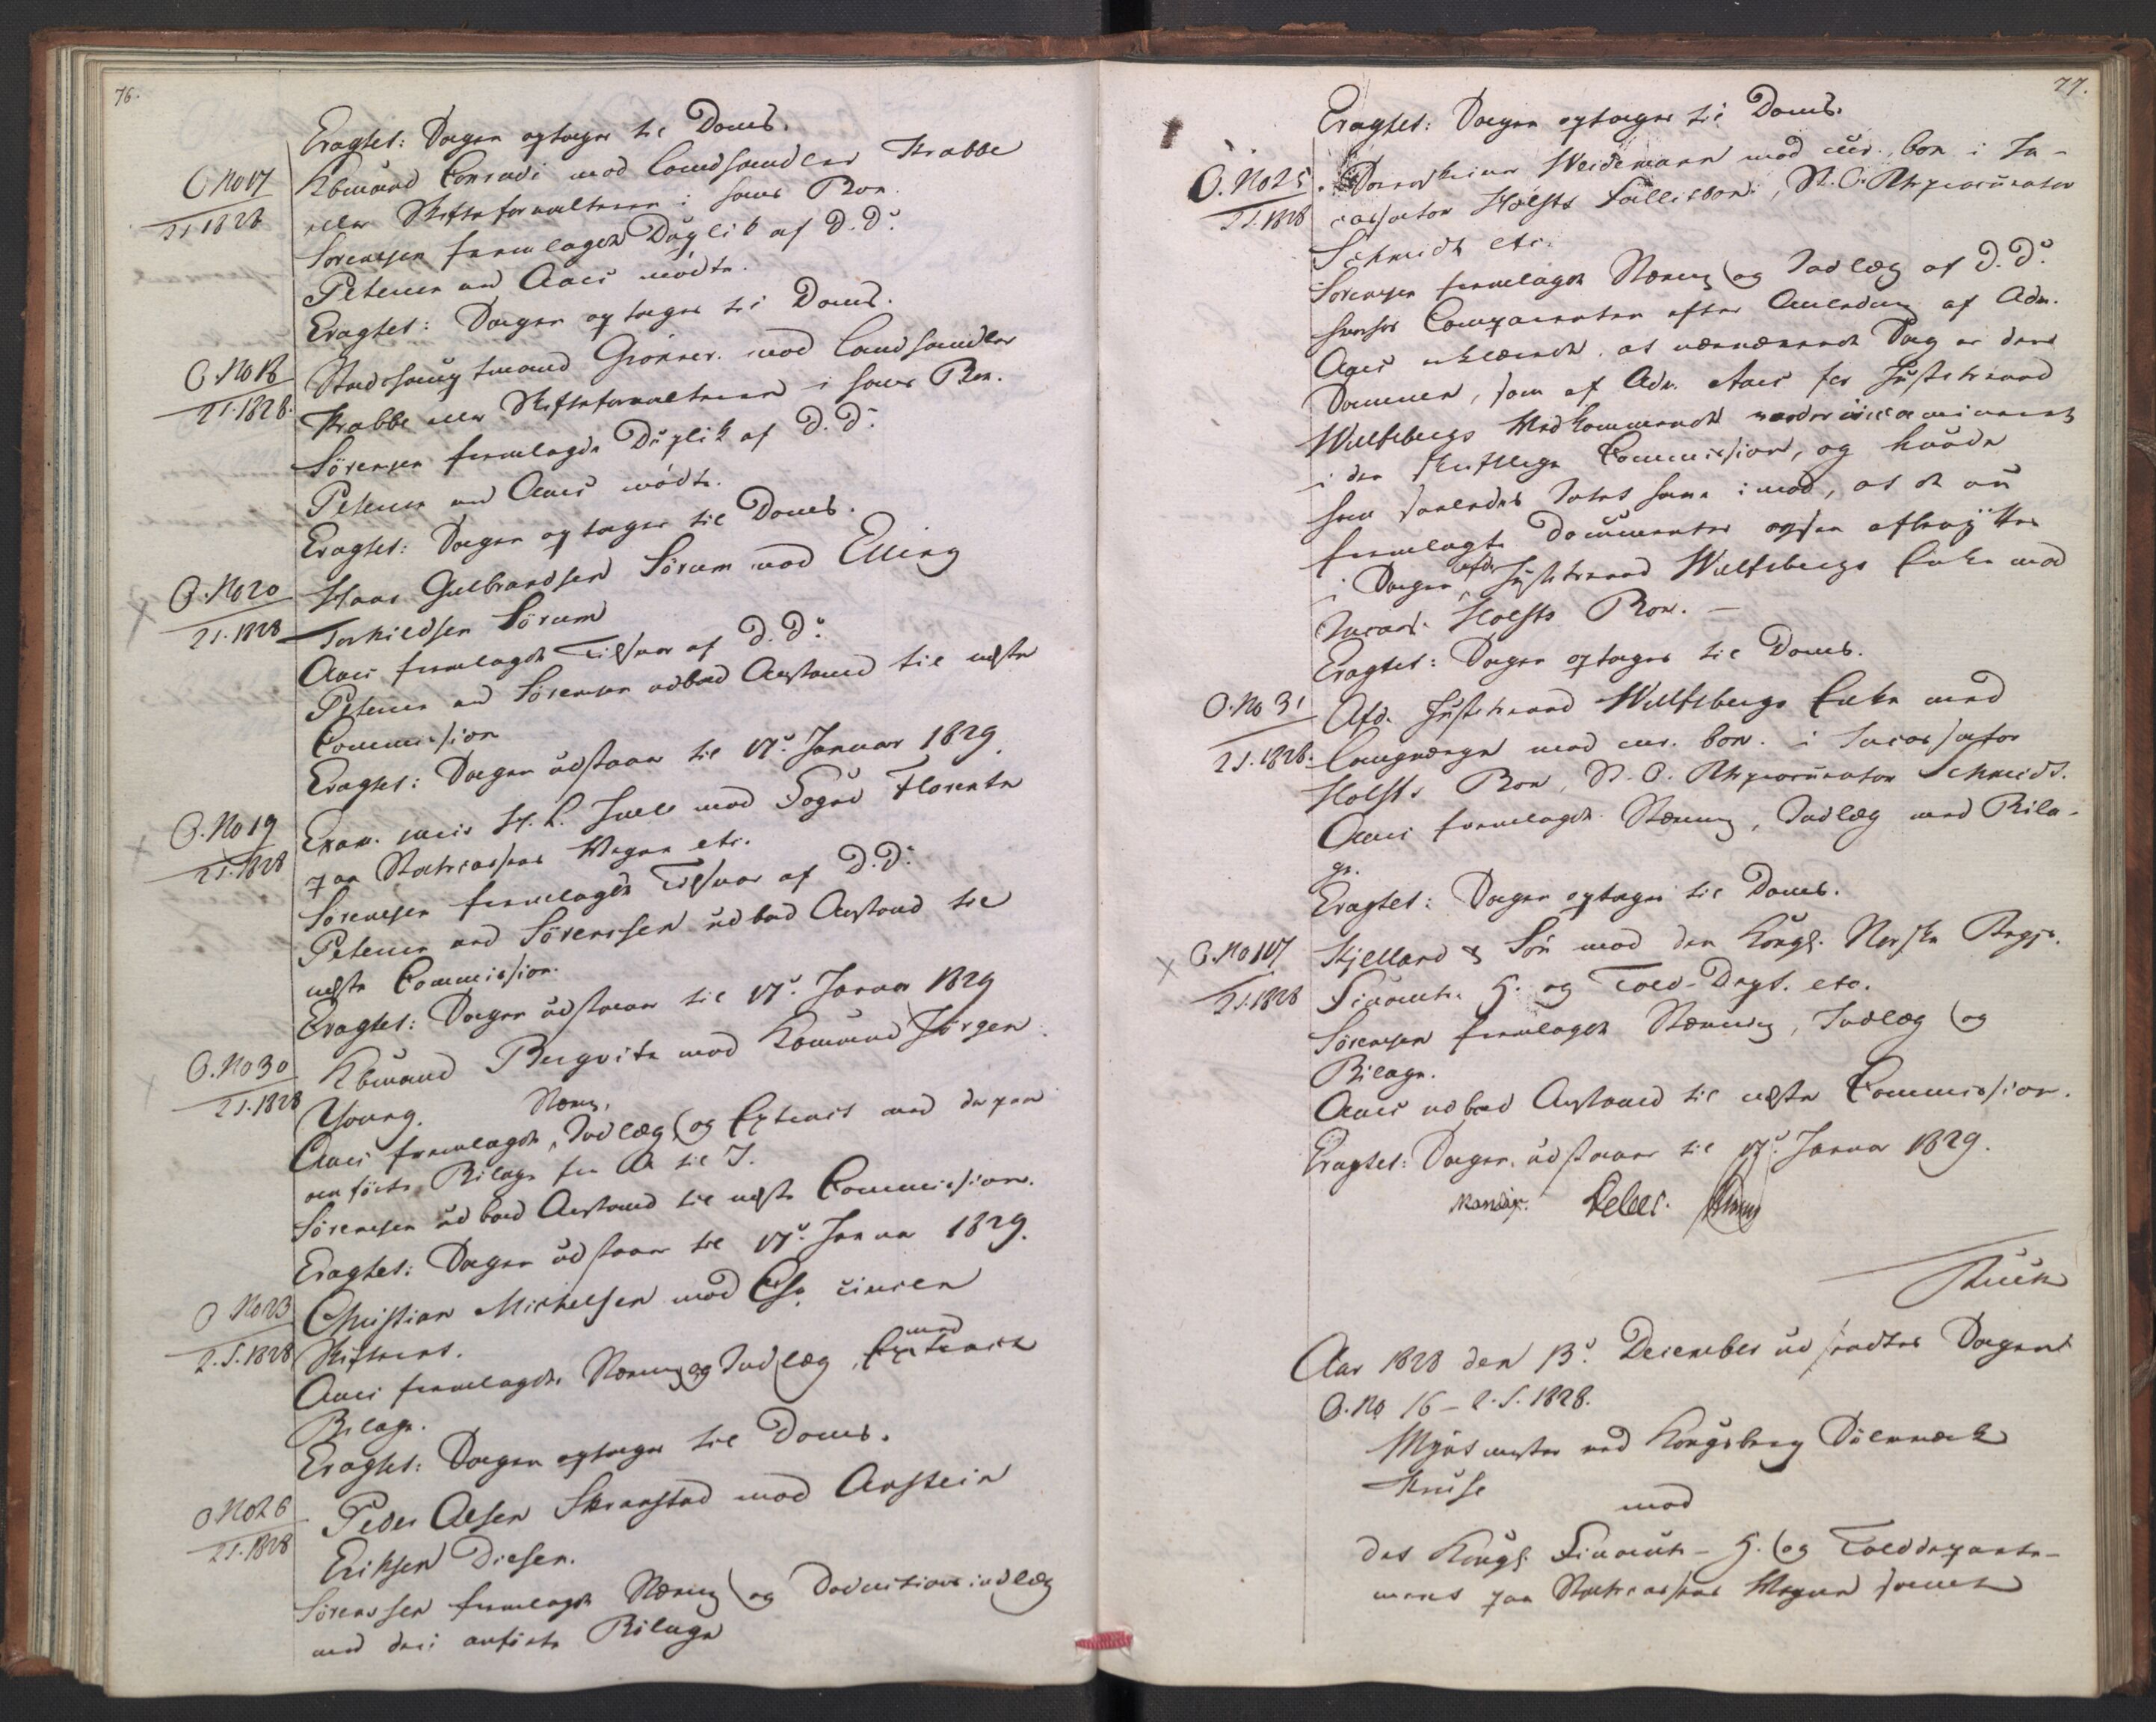 76.
Eragtet: Sagen optages til Doms.
O No 17
2 S. 1828
Kbmand Conradi mod Landhandler Krabbe
eller Skifteforvalteren i hans Boe.
Sørensen fremlagde Duplik af D. D.
Petersen med Aars mødte.
Eragtet: Sagen optages til Doms.
O. No 18
2 S. 1828.
Stadshauptmand Grønner mod Landhandler
Krabbe eller Skifteforvalteren i hans Boe.
Sörensen fremlagde Duplik af D. D.
Petersen med Aars mødte.
Eragtet: Sagen optages til Doms.
O. No 20
2 S. 1828
Hans Gulbrandsen Sörum mod Elling
Torkildsen Sörum
Aars fremlagde Tilsvar af D. D.
Petersen med Sörensen udbad Anstand til næste
Commission
Eragtet: Sagen udstaar til 17d Januar 1829.
O. No 19
2 S. 1828
Exam. juris H. L. Juell mod Foged Florentz
paa Statscassens Vegne etc.
Sörensen fremlagde Tilsvar af D. D.
Petersen med Sörenssen udbad Anstand til
næste Commission.
Eragtet: Sagen udstaar til 17d Januar 1829
O. No 30
2 S. 1828
Kbmand Bergvitz mod Kbmand Jörgen
Young.
Aars fremlagde Stævn., Indlæg og Extract med derpaa
anførte Bilage fra A til I.
Sörensen udbad Anstand til næste Commission.
Eragtet: Sagen udstaar til 17d Januar 1829.
O No 23
2. S. 1828
Christian Michelsen mod
Skifteret.
Aars fremlagde Stævning og Indlæg, Extract med
Bilage.
Eragtet: Sagen optages til Doms.
O No 26
2 S. 1828
Peder Olsen Skramstad mod Anstein
Eriksen Diesen.
Sörenssen fremlagde Stævning og Deductionsindlæg
med deri anførte Bilage
77.
Eragtet: Sagen optages til Doms.
O. No 25
2 S. 1828
Weidemann mod cur. bon. i In-
cassator Holsts Fallitboe, St. O. Rtsprocurator
Schmidt etc.
Sörensen fremlagde Stævning og Indlæg af D. D.
hvorhos Comparenten efter Anledning af Adv.
Aars erklærede, at nærværende Sag er den
samme, som af Adv. Aars for Justitsraad
Wulfsbergs Vedkommende
i den skriftlige Commission, og havde
han saaledes Intet herimod, at de nu
fremlagte Documenter ogsaa afbenyttes
i Sagen, afdr Justitsraad Wulfsbergs Enke mod
Incass. Holsts Boe. —
Eragtet: Sagen optages til Doms.
O. No 31
2 S. 1828.
Afd. Justitsraad Wulfsbergs Enke med
Laugværge mod cur. bon. i Incassator
Holsts Boe, St. O. Rtsprocurator Schmidt.
Aars fremlagde Stævning, Indlæg med Bila-
ge.
Eragtet: Sagen optages til Doms.
O. No 107
2 S. 1828
Kjelland & Søn mod den Kongl. Norske Regjs.
Finants- H. og Told-Dept. etc.
Sörensen fremlagde Stævning, Indlæg og
Bilage.
Aars udbad Anstand til næste Commission.
Eragtet: Sagen udstaar til 17d Januar 1829.
Debes.
Aar 1828 den 13d December udstedtes Sagen
O. No 16 – 2. S. 1828.
Myntmester ved Kongsberg Sölvværk
Kruse
mod
det Kongl. Finants- H. og Tolddeparte-
ment paa Statscassens Vegne samt